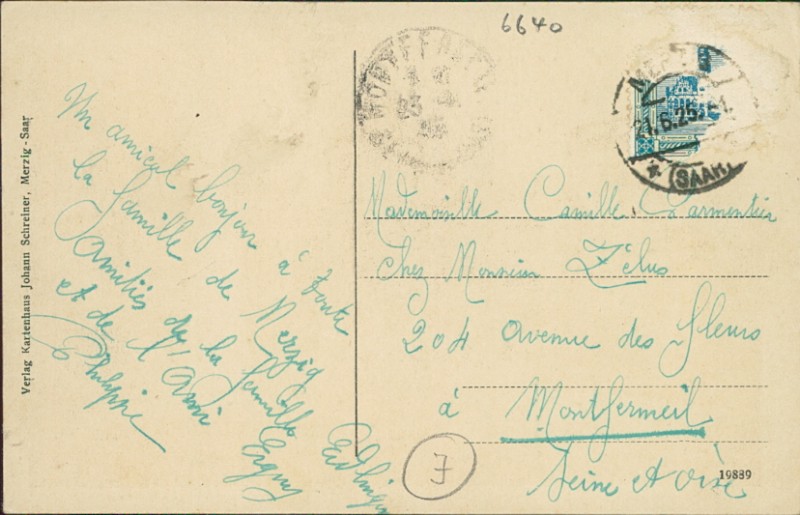 6640
MERZIG
21.6.25
(SAAR)
MONTFERMEIL
Un amical bonjour à toute
la famille de Merzig
Amitiés de la famille Edlinger
et de l'Ami
Philippe
Mademoiselle Camille Parmentier
Chez Monsieur Zélus
204 avenue des fleurs
à Montfermeil
Seine et Oise
J
19889
Verlag Kartenhaus Johann Schreiner, Merzig-Saar